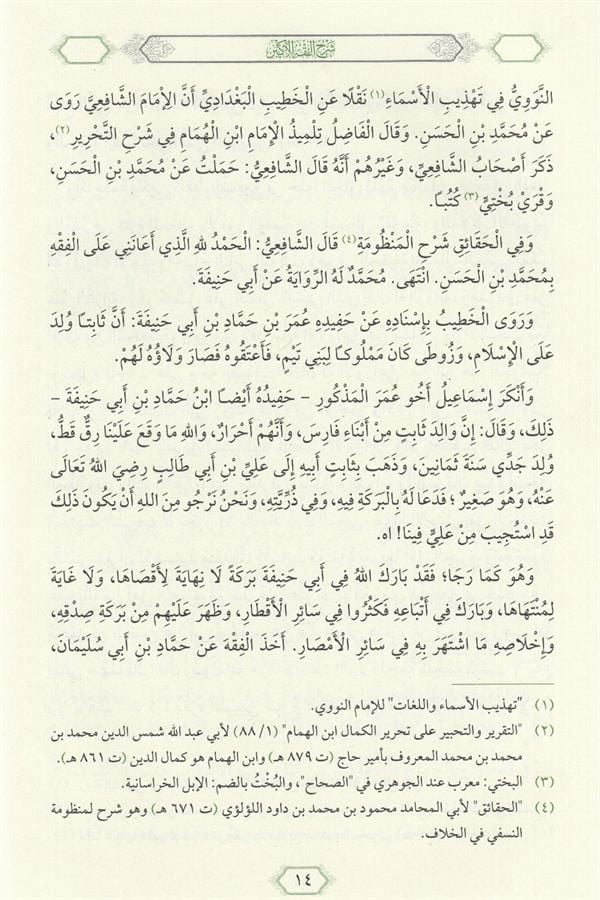 شَرْحُ الفِقْهِ الأَكْبَرِ
النَّوَوِيُّ فِي تَهْذِيبِ الْأَسْمَاءِ(١) نَقْلًا عَنِ الْخَطِيبِ الْبَغْدَادِيِّ أَنَّ الْإِمَامَ الشَّافِعِيَّ رَوَى
عَنْ مُحَمَّدِ بْنِ الْحَسَنِ. وَقَالَ الْفَاضِلُ تِلْمِيذُ الْإِمَامِ ابْنِ الْهُمَامِ فِي شَرْحِ التَّحْرِيرِ(٢)،
ذَكَرَ أَصْحَابُ الشَّافِعِيِّ، وَغَيْرُهُمْ أَنَّهُ قَالَ الشَّافِعِيُّ: حَمَلْتُ عَنْ مُحَمَّدِ بْنِ الْحَسَنِ،
وَقْرَيْ بُخْتِيٍّ(٣) كُتُبًا.
وَفِي الْحَقَائِقِ شَرْحِ الْمَنْظُومَةِ(٤) قَالَ الشَّافِعِيُّ: الْحَمْدُ لِلهِ الَّذِي أَعَانَنِي عَلَى الْفِقْهِ
بِمُحَمَّدِ بْنِ الْحَسَنِ. انْتَهَى. مُحَمَّدٌ لَهُ الرِّوَايَةُ عَنْ أَبِي حَنِيفَةَ.
وَرَوَى الْخَطِيبُ بِإِسْنَادِهِ عَنْ حَفِيدِهِ عُمَرَ بْنِ حَمَّادِ بْنِ أَبِي حَنِيفَةَ: أَنَّ ثَابِتًا وُلِدَ
عَلَى الْإِسْلَامِ، وَزُوطَى كَانَ مَمْلُوكًا لِبَنِي تَيْمٍ، فَأَعْتَقُوهُ فَصَارَ وَلَاؤُهُ لَهُمْ.
وَأَنْكَرَ إِسْمَاعِيلُ أَخُو عُمَرَ الْمَذْكُورِ – حَفِيدُهُ أَيْضًا ابْنُ حَمَّادِ بْنِ أَبِي حَنِيفَةَ –
ذَلِكَ، وَقَالَ: إِنَّ وَالِدَ ثَابِتٍ مِنْ أَبْنَاءِ فَارِسَ، وَأَنَّهُمْ أَحْرَارٌ، وَاللهِ مَا وَقَعَ عَلَيْنَا رِقٌّ قَطُّ،
وُلِدَ جَدِّي سَنَةَ ثَمَانِينَ، وَذَهَبَ بِثَابِتٍ أَبِيهِ إِلَى عَلِيِّ بْنِ أَبِي طَالِبٍ رَضِيَ اللهُ تَعَالَى
عَنْهُ، وَهُوَ صَغِيرٌ؛ فَدَعَا لَهُ بِالْبَرَكَةِ فِيهِ، وَفِي ذُرِّيَّتِهِ، وَنَحْنُ نَرْجُو مِنَ اللهِ أَنْ يَكُونَ ذَلِكَ
قَدِ اسْتُجِيبَ مِنْ عَلِيٍّ فِينَا! اه.
وَهُوَ كَمَا رَجَا؛ فَقَدْ بَارَكَ اللهُ فِي أَبِي حَنِيفَةَ بَرَكَةً لَا نِهَايَةَ لِأَقْصَاهَا، وَلَا غَايَةَ
لِمُنْتَهَاهَا، وَبَارَكَ فِي أَتْبَاعِهِ فَكَثُرُوا فِي سَائِرِ الْأَقْطَارِ، وَظَهَرَ عَلَيْهِمْ مِنْ بَرَكَةِ صِدْقِهِ،
وَإِخْلَاصِهِ مَا اشْتَهَرَ بِهِ فِي سَائِرِ الْأَمْصَارِ. أَخَذَ الْفِقْهَ عَنْ حَمَّادِ بْنِ أَبِي سُلَيْمَانَ،
(١) "تهذيب الأسماء واللغات" للإمام النووي.
(٢) "التقرير والتحبير على تحرير الكمال ابن الهمام" (١/ ٨٨) لأبي عبد الله شمس الدين محمد بن
محمد بن محمد المعروف بأمير حاج (ت ٨٧٩ هـ) وابن الهمام هو كمال الدين (ت ٨٦١ هـ).
(٣) البختي: معرب عند الجوهري في "الصحاح"، والبُخْتُ بالضم: الإبل الخراسانية.
(٤) "الحقائق" لأبي المحامد محمود بن محمد بن داود اللؤلؤي (ت ٦٧١ هـ) وهو شرح لمنظومة
النسفي في الخلاف.
١٤